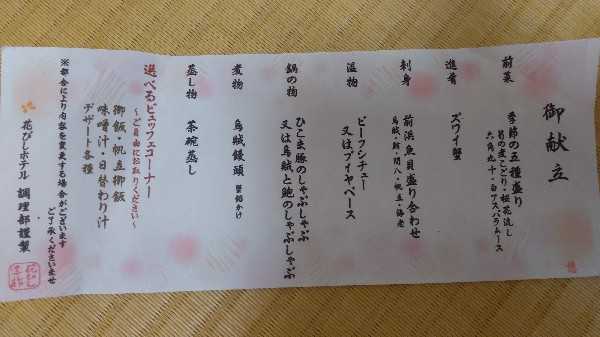 御献立
前菜
季節の五種盛り
六角九十・白アスパラムース
進肴
ズワイ蟹
刺身
前浜魚貝盛り合わせ
烏賊・鮪・間八・帆立・海老
温物
ビーフシチュー
又はブイヤベース
鍋の物
ひこま豚のしゃぶしゃぶ
又は烏賊と鮑のしゃぶしゃぶ
煮物
烏賊饅頭 蟹餡かけ
蒸し物
茶碗蒸し
選べるビュッフェコーナー
～ご自由にお取りください～
御飯・帆立御飯
味噌汁・日替わり汁
デザート各種
※都合により内容を変更する場合がございます
ご了承くださいませ
花びしホテル 調理部謹製